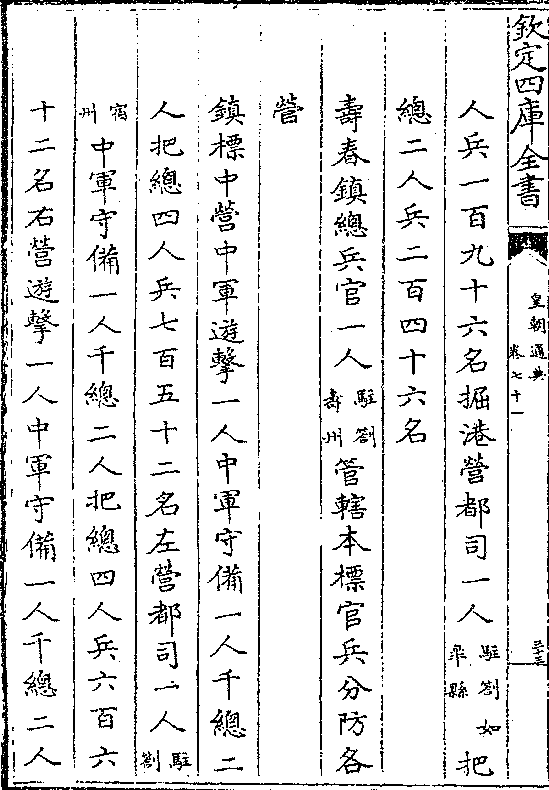 欽定四庫全書
皇朝通典
卷七十一
三十三
人兵一百九十六名掘港營都司一人駐劄如臯縣把
總二人兵二百四十六名
壽春鎮總兵官一人駐劄壽州管轄本標官兵分防各
營
鎮標中營中軍遊擊一人中軍守備一人千總二
人把總四人兵七百五十二名左營都司一人駐劄
宿州中軍守備一人千總二人把總四人兵六百六
十二名右營遊擊一人中軍守備一人千總二人